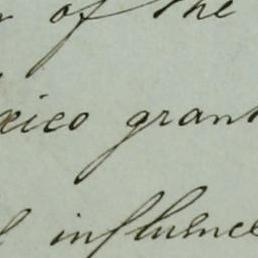 of the
xico grant
influence